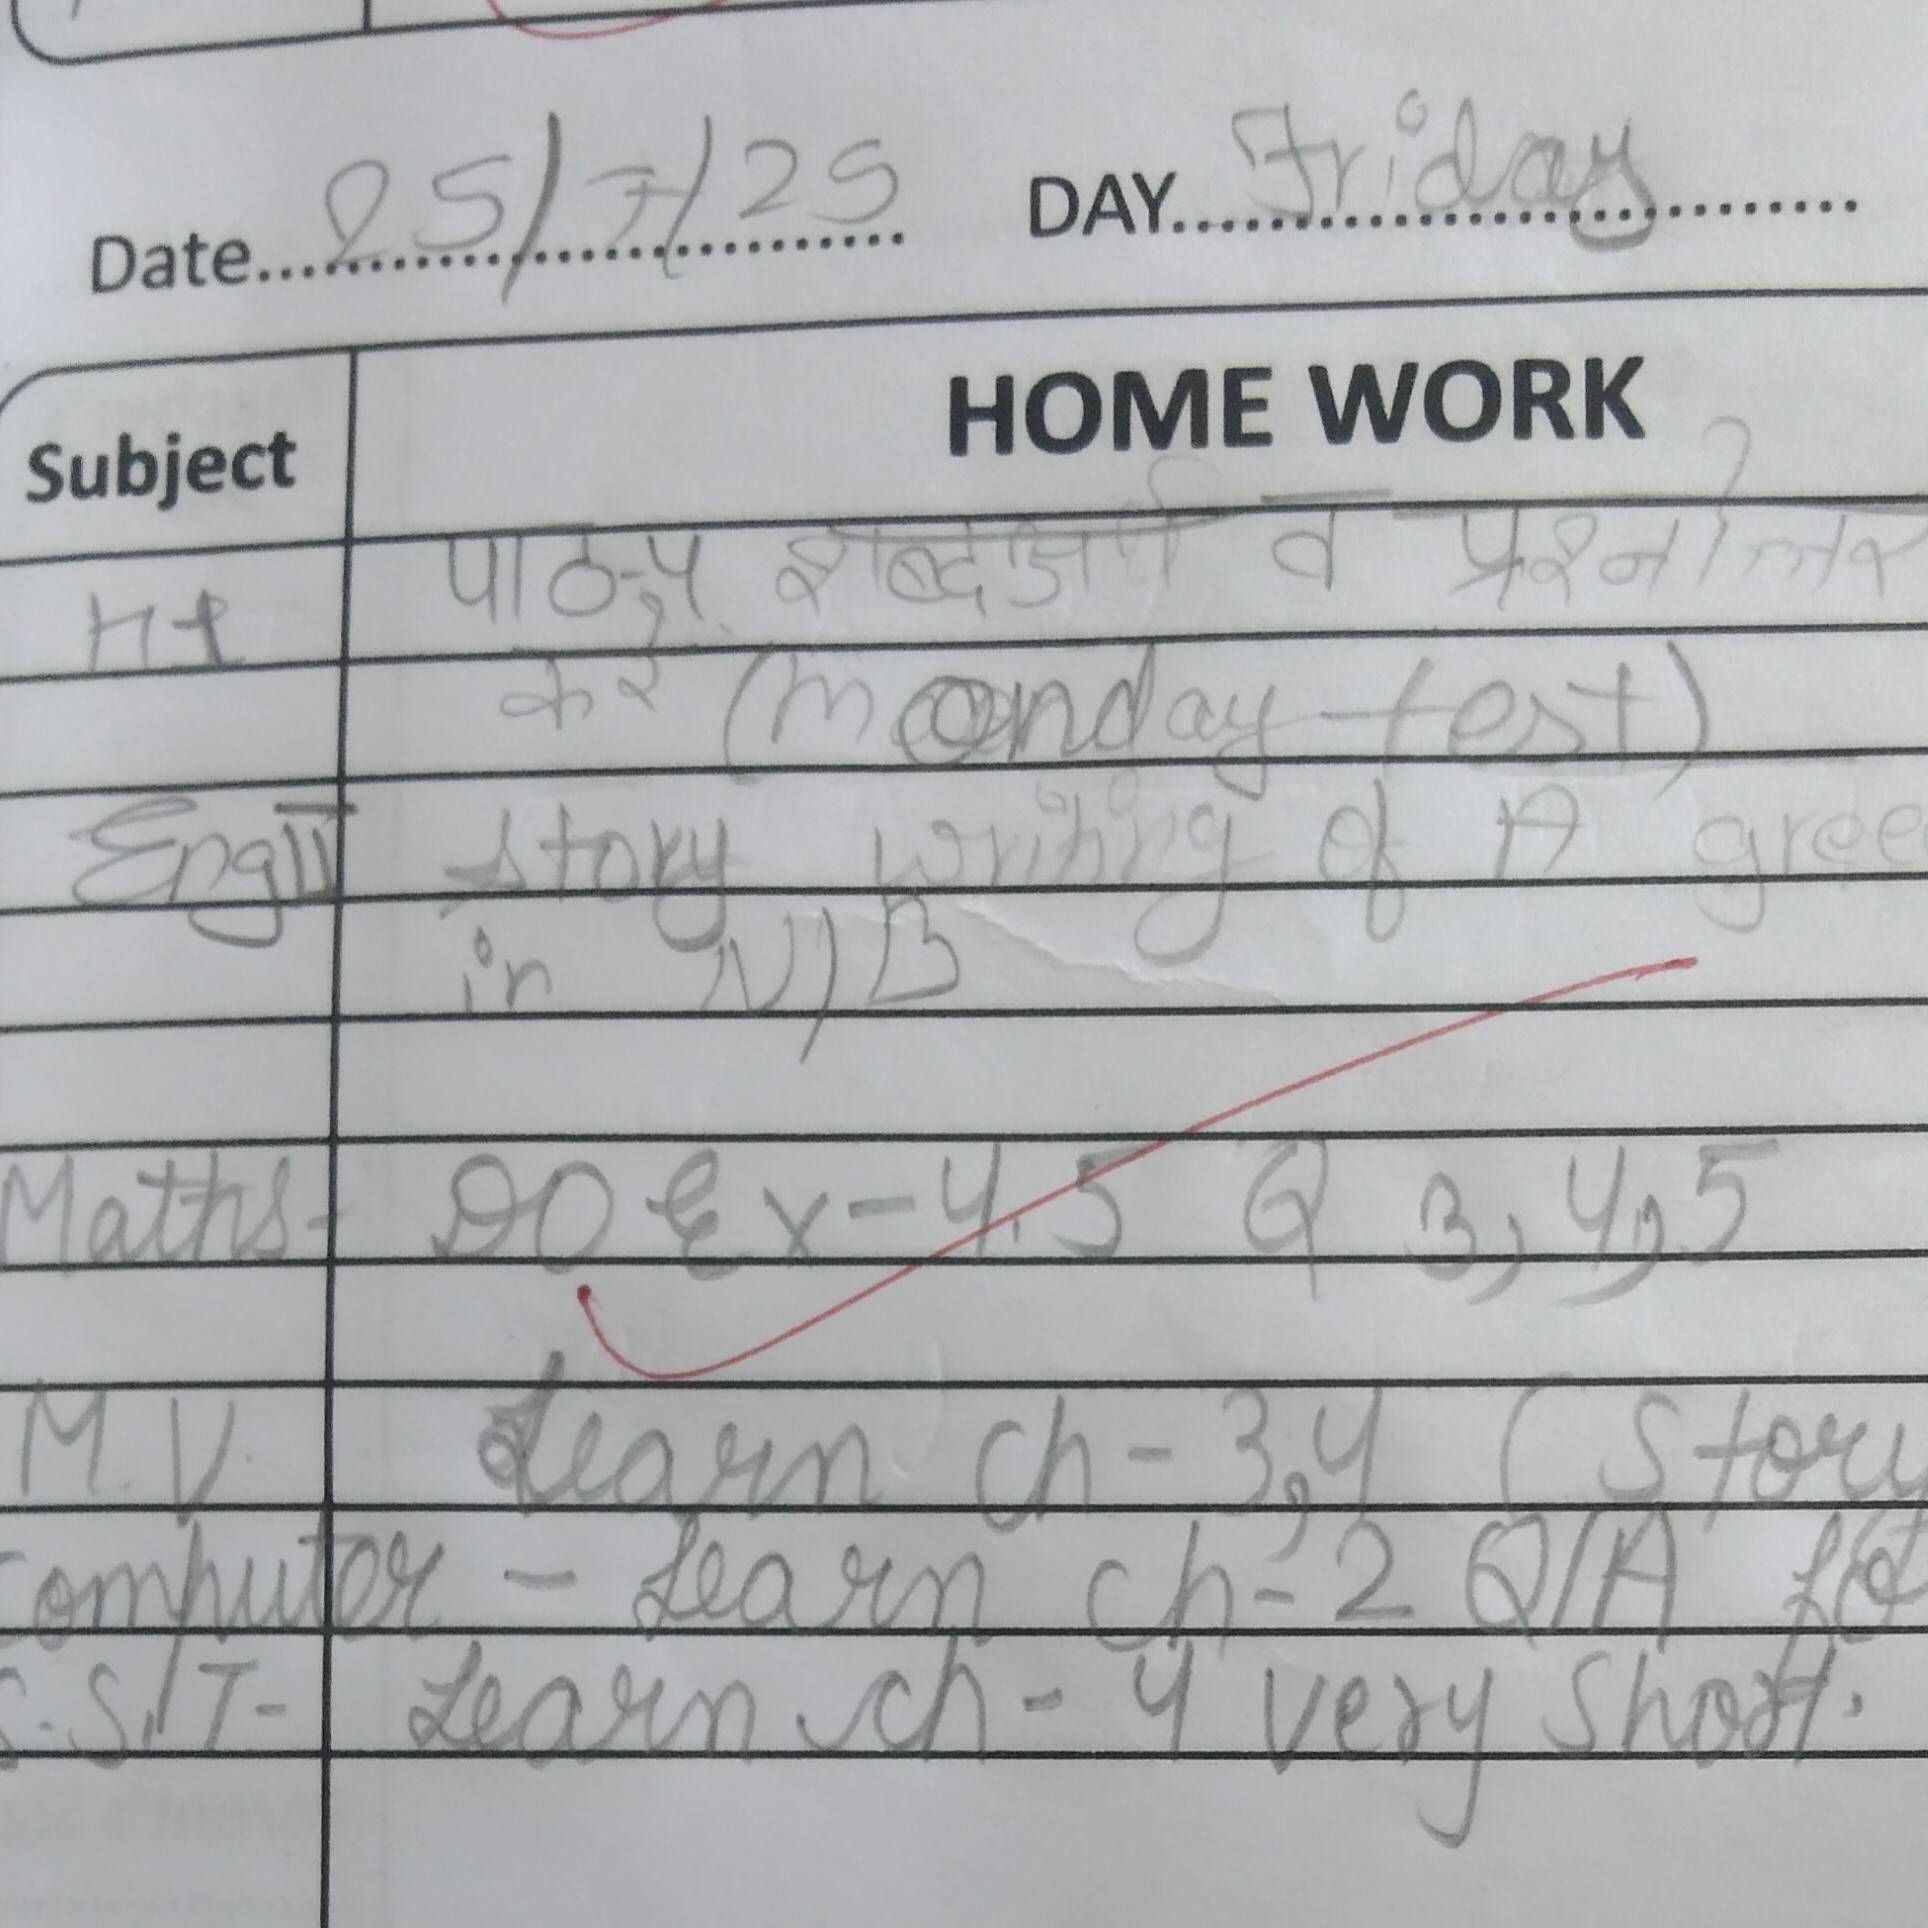 Date 25/7/25 DAY Friday
Subject HOME WORK
पाठ-5, शब्दअर्थ व प्रश्नोत्तर
करे (monday test)
Eng II story writing of A gree
in N/B
Maths- DO Ex-4.5 Q 3,4,5
M.V. Learn ch-3,4 (Story
computer - Learn ch-2 Q/A
S.S.T- Learn ch-4 very short.